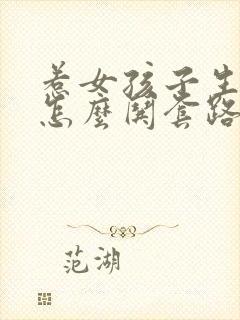 惹女孩子生
怎麼開套路
范湖